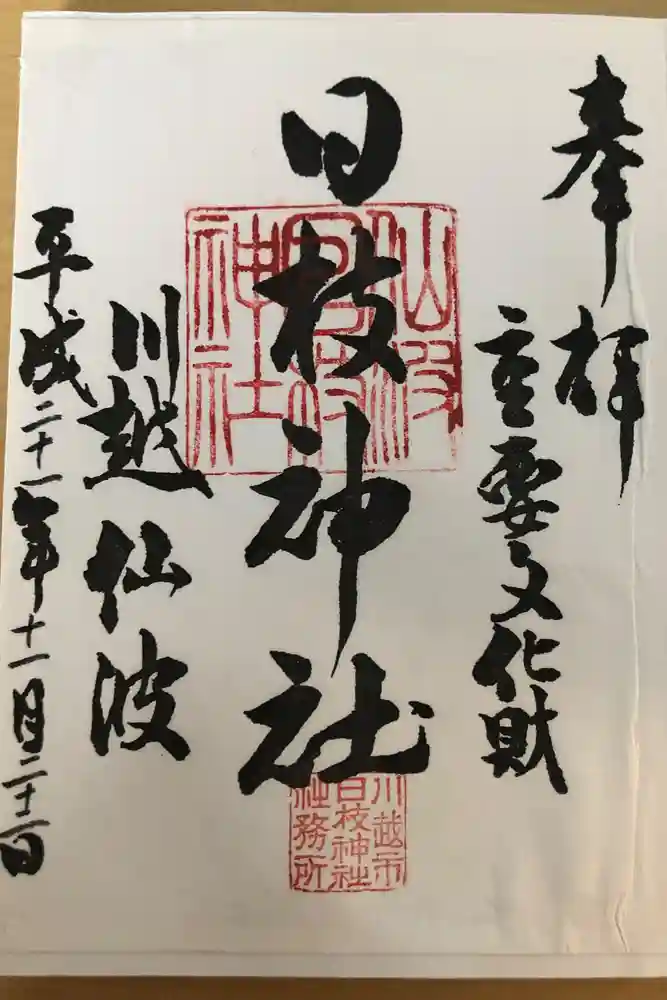 奉拝
重要文化財
日枝神社
仙波
日枝
神社
川越市
日枝神社
社務所
川越仙波
平成二十一年十一月二十二日